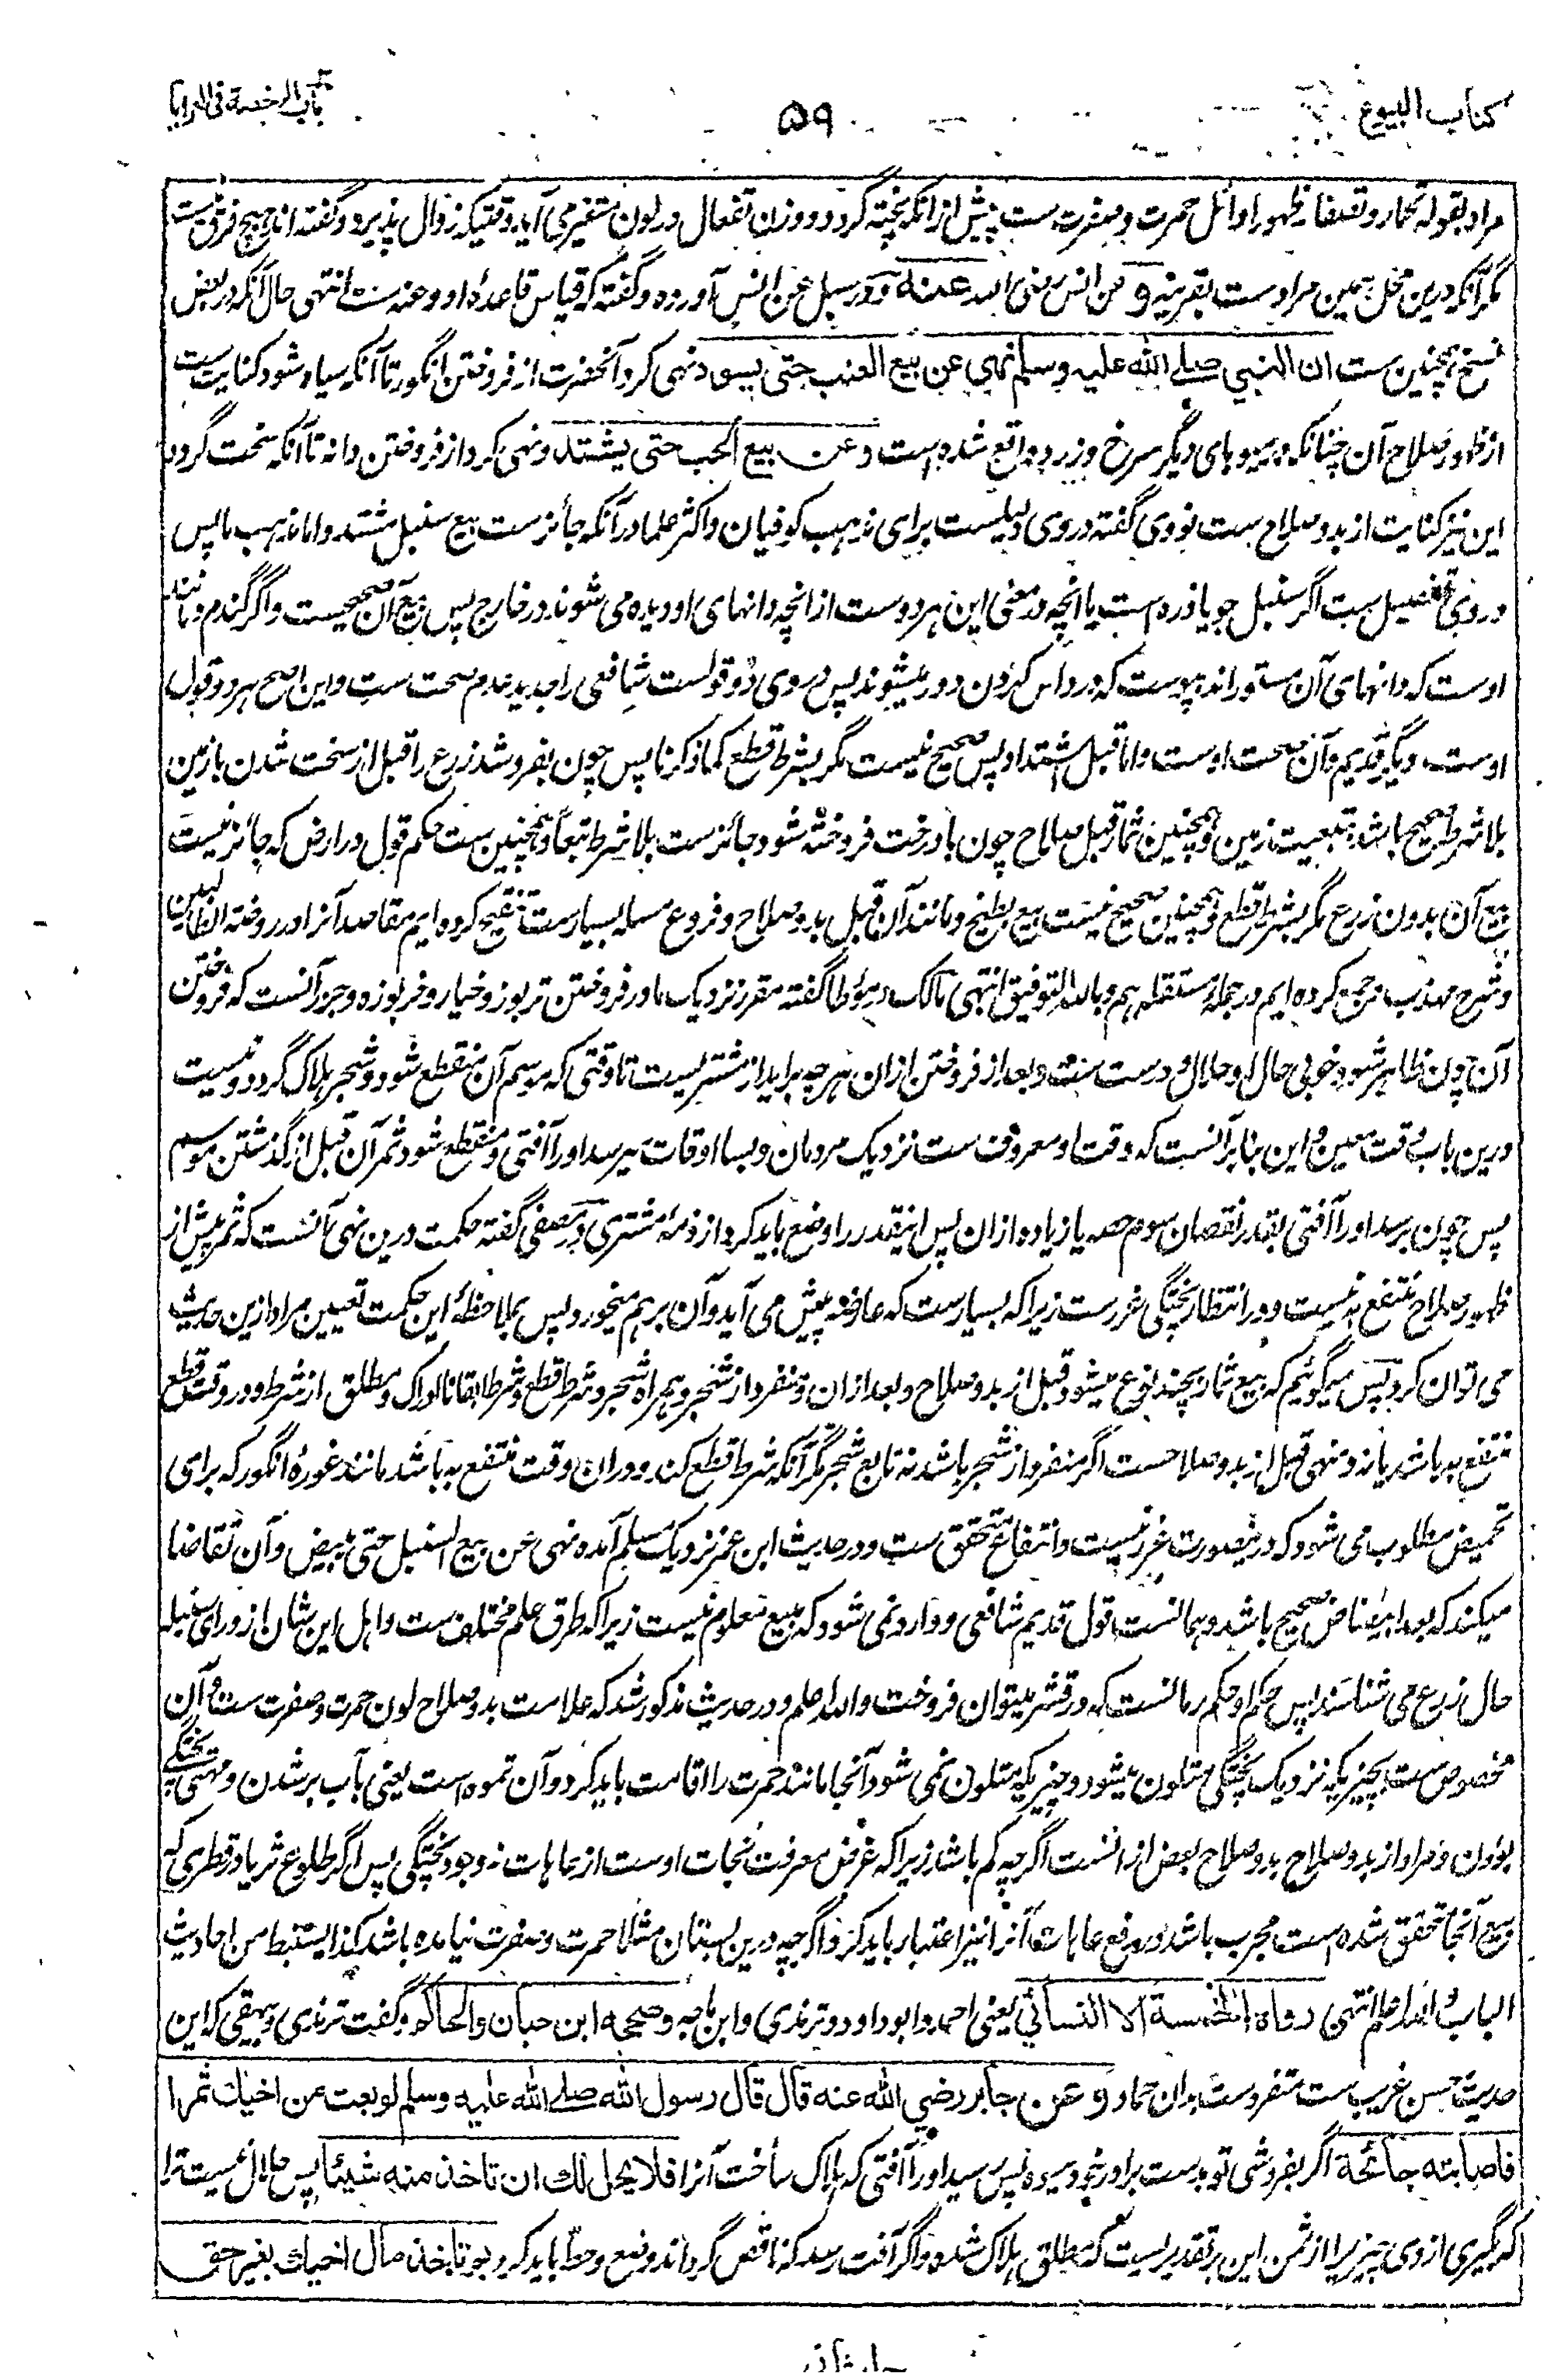 کتاب البیوع
۵۹
باب الرخصة فی العرایا
مراد بقوله تحمار و تصفار ظهور اوائل حمرت و صفرت ست پیش از انکه پخته گردد و وزن تفعال در لون متغیر می آید وقتیکه زوال پذیرد و گفته اند هیچ فرق نیست
مگر آنکه درین محل همین مراد ست بقرینه و عن انس رضی الله عنه و در سبل عن انس آورده و گفته که قیاس قاعدۀ او وعنه ست انتهی حال آنکه در بعض
نسخ همچنین ست ان النبی صلے الله علیه وسلم نهی عن بیع العنب حتی یسود و نهی کرد آنحضرت از فروختن انگور تا آنکه سیاه شود کنایت ست
از ظهور صلاح آن چنانکه در میوهای دیگر سرخ و زرد واقع شده است وعن بیع الحب حتی یشتد و نهی کرد از فروختن دانه تا آنکه سخت گردد
این نیز کنایت از بدو صلاح ست نووی گفته در وی دلیلست برای مذهب کوفیان و اکثر علما در آنکه جائز ست بیع سنبل مشتد و اما مذهب ما پس
در وی تفصیل ست اگر سنبل جو یا ذره است یا انچه در معنی این هر دوست از انچه دانهای او دیده می شوند در خارج پس بیع آن صحیحست و اگر گندم و مانند
اوست که دانهای آن مستوراند بپوست که در داس کردن دور میشوند پس در وی دو قولست شافعی را جدید عدم صحت ست و این اصح هر دو قول
اوست و دیگر قدیم و آن صحت اوست و اما قبل اشتداد پس صحیح نیست مگر بشرط قطع کما ذکرنا پس چون بفروشد زرع را قبل از سخت شدن با زمین
بلا شرط صحیح باشد بتبعیت زمین و همچنین ثمار قبل صلاح چون با درخت فروخته شود جائز ست بلا شرط تبعاً و همچنین ست حکم قول در ارض که جائز نیست
بیع آن بدون زرع مگر بشرط قطع و همچنین صحیح نیست بیع بطیخ و مانند آن قبل بدو صلاح و فروع مسله بسیارست تنقیح کرده ایم مقاصد آنرا در روضة الطالبین
و شرح مهذب و جمع کرده ایم در جملۀ مستقله هم و بالله التوفیق انتهی مالک در موطا گفته مقرر نزدیک ما در فروختن تربوز و خیار و خرپوزه و جزر آنست که فروختن
آن چون ظاهر شود خوبی حال او حلال و درست ست و بعد از فروختن ازان هر چه برآید از مشتریست تا وقتی که موسم آن منقطع شود و شجر هلاک گردد و نیست
درین باب وقت معین و این بنابر آنست که وقت او معروفت ست نزدیک مردمان و بسا اوقات میرسد او را آفتی و منقطع شود ثمر آن قبل از گذشتن موسم
پس چون برسد او را آفتی بقدر نقصان سوم حصه یا زیاده ازان پس اینقدر را وضع باید کرد از ذمۀ مشتری و در مصفی گفته حکمت درین نهی آنست که ثمر پیش از
ظهور صلاح منتفع به نیست و در انتظار پختگی غررست زیرا که بسیارست که عارضه پیش می آید و آن برهم میخورد پس بملاحظۀ این حکمت تعیین مراد ازین حدیث
می توان کرد پس میگوئیم که بیع ثمار بچند نوع میشود قبل از بدو صلاح و بعد ازان و منفرد از شجر و همراه شجر و شرط قطع و شرط ابقا تا ادراک و مطلق از شرط و در وقت قطع
منتفع به باشد یا نه و نهی قبل از بدو صلاحست اگر منفرد از شجر باشد نه تابع شجر مگر آنکه شرط قطع کند و دران وقت منتفع به باشد مانند غورۀ انگور که برای
تحمیض مطلوب می شود که درینصورت غرر نیست و انتفاع متحقق ست و در حدیث ابن عمر نزدیک مسلم آمده نهی عن بیع السنبل حتی یبیض و آن تقاضا
میکند که بعد ابیضاض صحیح باشد و همانست قول قدیم شافعی و وارد نمی شود که مبیع معلوم نیست زیرا که طرق علم مختلف ست و اهل این شان از ورای سنبله
حال زرع می شناسند پس حکم او حکم رمانست که در قشر میتوان فروخت والله اعلم و در حدیث مذکور شد که علامت بدو صلاح لون حمرت و صفرت ست و آن
مخصوص ست بچیزیکه نزدیک پختگی متلون میشود و چیزیکه متلون نمی شود آنجا مانند حمرت را اقامت باید کرد و آن تموه است یعنی بآب پر شدن و مهیی پختگی
بودن و مراد از بدو صلاح بدو صلاح بعض ازانست اگرچه کم باشد زیرا که غرض معرفت نجات اوست از عاهات نه وجود پختگی پس اگر طلوع ثریا در قطری که
بیع آنجا متحقق شده است مجرب باشد در رفع عاهات آنرا نیز اعتبار باید کرد اگرچه درین بستان مثلا حمرت و صفرت نیامده باشد کذا یستنبط من احادیث
الباب والله اعلم انتهی رواه الخمسة الا النسائی یعنی احمد و ابوداود و ترمذی و ابن ماجه وصححه ابن حبان والحاکم و گفت ترمذی و بیهقی که این
حدیث حسن غریب ست متفردست بدان حماد وعن جابر رضی الله عنه قال قال رسول الله صلے الله علیه وسلم لو بعت من اخیك ثمرا
فاصابته جائحة اگر بفروشی تو بدست برادر خود میوه پس رسید او را آفتی که هلاک ساخت آنرا فلا یحل لك ان تاخذ منه شیئا پس حلال نیست ترا
که بگیری از وی چیزیرا از ثمن این بر تقدیریست که مطلق هلاک شده و اگر آفت رسد که ناقص گرداند وضع و حط باید کرد بم تاخذ مال اخیك بغیر حق